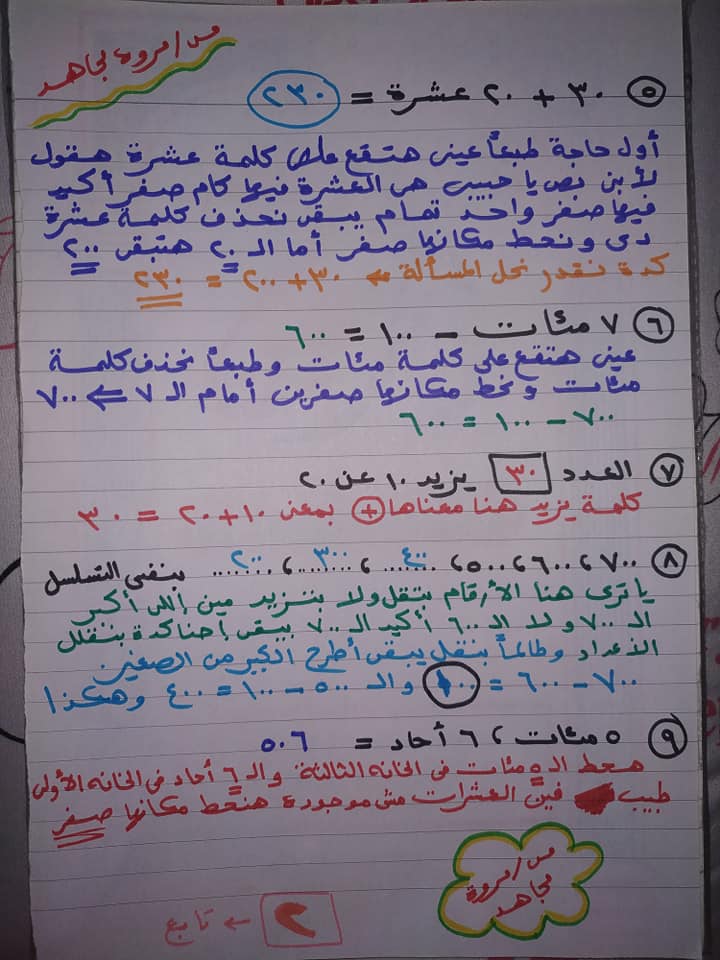 مس/مروة مجاهد
٥ ٣٠ + ٢٠ عشرة = ٢٣٠
أول حاجة طبعاً عينى هتقع على كلمة عشرة هقول
لأبنى بص يا حبيبى هى العشرة فيها كام صفر أكيد
فيها صفر واحد تمام يبقى نحذف كلمة عشرة
دى ونحط مكانها صفر أما الـ ٢٠ هتبقى ٢٠٠
كدة نقدر نحل المسألة ← ٣٠ + ٢٠٠ = ٢٣٠
٦ ٧ مئات - ١٠٠ = ٦٠٠
عينى هتقع على كلمة مئات وطبعاً نحذف كلمة
مئات ونحط مكانها صفرين أمام الـ ٧ ⇐ ٧٠٠
٧٠٠ - ١٠٠ = ٦٠٠
٧ العدد ٣٠ يزيد ١٠ عن ٢٠
كلمة يزيد هنا معناها + بمعنى ١٠ + ٢٠ = ٣٠
٨ ٧٠٠، ٦٠٠، ٥٠٠، ٤٠٠، ٣٠٠، ٢٠٠ بنفس التسلسل
يا ترى هنا الأرقام بتقل ولا بتزيد مين اللى أكبر
الـ ٧٠٠ ولا الـ ٦٠٠ أكيد الـ ٧٠٠ يبقى إحنا كدة بنقلل
الأعداد وطالما بنقلل يبقى أطرح الكبير من الصغير
٧٠٠ - ٦٠٠ = ١٠٠ والـ ٥٠٠ - ١٠٠ = ٤٠٠ وهكذا
٩ ٥ مئات، ٦ أحاد = ٥٠٦
هحط الـ ٥ مئات فى الخانه الثالثة والـ ٦ أحاد فى الخانه الأولى
طيب فين العشرات مش موجودة هنحط مكانها صفر
مس/مروة
مجاهد
٢ ← تابع